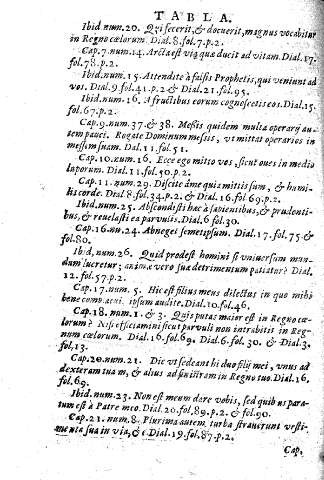 TABLA.
Ibid. num. 20. Qui fecerit, & docuerit, magnus vocabitur
in Regno cælorum. Dial. 8. fol. 7. p. 2.
Cap. 7. num. 14. Arcta est via quæ ducit ad vitam. Dial. 17.
fol. 78. p. 2.
Ibid. num. 15. Attendite à falsis Prophetis, qui veniunt ad
vos. Dial. 9. fol. 41. p. 2 & Dial. 21. fol. 95.
Ibid. num. 16. A fructibus eorum cognoscetis eos. Dial. 15.
fol. 67. p. 2.
Cap. 9. num. 37. & 38. Messis quidem multa operarij au-
tem pauci. Rogate Dominum messis, vt mittat operarios in
messim suam. Dal. 11. fol. 51.
Cap. 10. num. 16. Ecce ego mitto vos, sicut oues in medio
luporum. Dial. 11. fol. 50. p. 2.
Cap. 11. num. 29. Discite à me quia mitis sum, & humi-
lis corde. Dial. 8. fol. 34. p. 2. & Dial. 16. fol 69. p. 2.
Ibid. num. 25. Abscondisti hæc à sapientibus, & prudenti-
bus, & reuelasti ea paruulis. Dial. 6. fol. 30.
Cap. 16. nu. 24. Abneget semetipsum. Dial. 17. fol. 75. &
fol. 80.
Ibid. num. 26. Quid prodest homini si vniuersum mun-
dum lucretur; animæ vero suæ detrimentum patiatur? Dial.
12. fol. 57. p. 2.
Cap. 17. num. 5. Hic est filius meus dilectus in quo mihi
bene ipsum audite. Dial. 10. fol. 46.
Cap. 18. num. 1. & 3. Quis putas maior est in Regno cæ-
lorum? Nisi efficiamini sicut paruuli non intrabitis in Reg-
num cælorum. Dial. 16. fol. 69. Dial. 6. fol. 30. & Dial. 3.
fol, 13.
Cap. 20. num. 21. Dic vt sedeant hi duo filij mei, vnus ad
dexteram tuam, & alius ad sinistram in Regno tuo. Dial. 16.
fol. 69.
Ibid. num. 23. Non est meum dare vobis, sed quibus para-
tum est à Patre meo. Dial. 20. fol. 89. p. 2. & fol. 90.
Cap. 21. num. 8. Plurima autem turba strauerunt vesti-
menta sua in via, & c. Dial. 19. fol. 87. p. 2.
Cap.